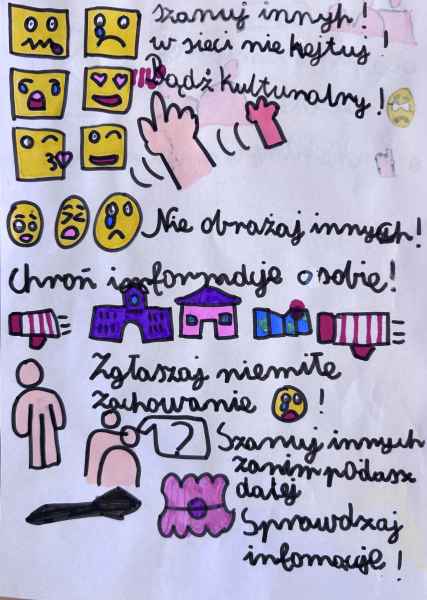 szanuj innyh!
w sieci nie hejtuj!
Bądź kulturalny!
Nie obrażaj innych!
Chroń informacje o sobie!
Zgłaszaj niemiłe
zachowanie !
?
Szanuj innych
zanim podasz
dalej
Sprawdzaj
infomacje!